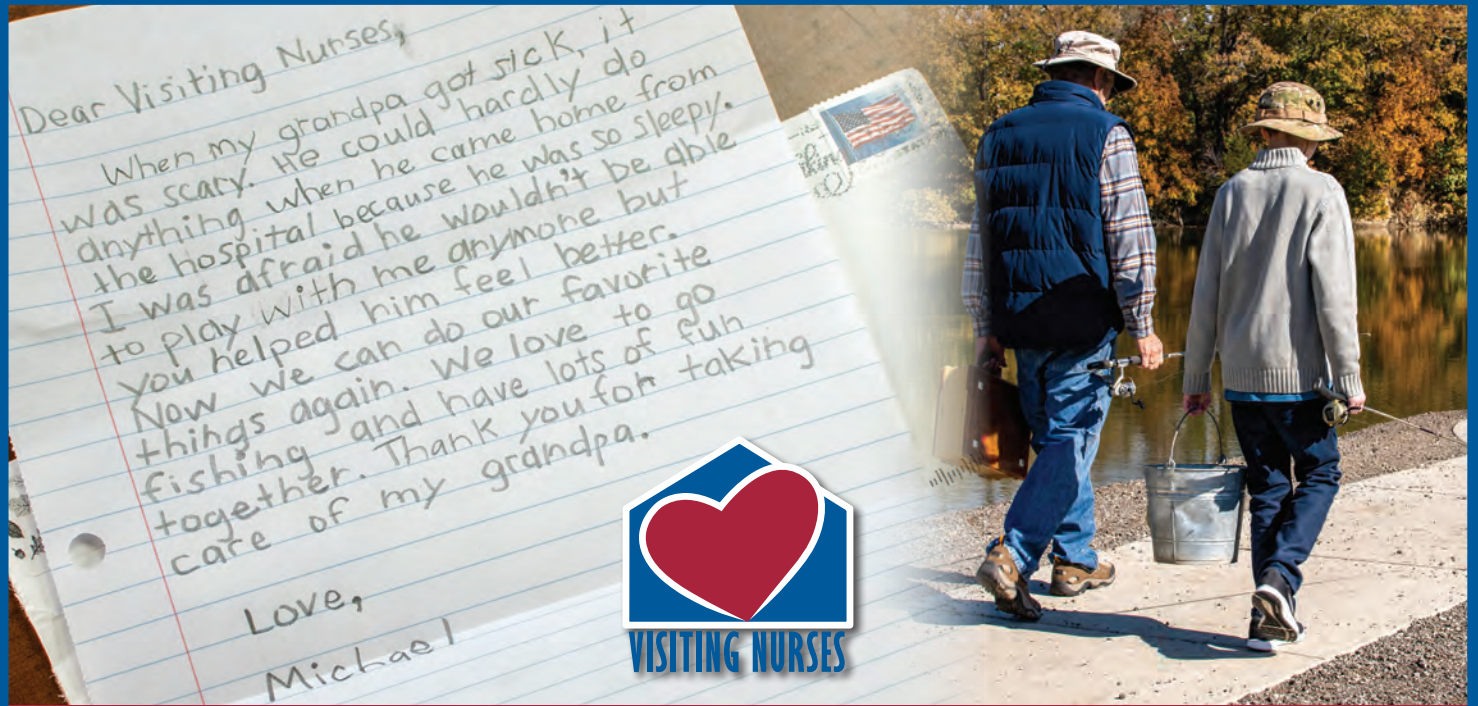 Dear Visiting Nurses,
When my grandpa got sick, it
was scary. He could hardly do
anything when he came home from
the hospital because he was so sleepy.
I was afraid he wouldn't be able
to play with me anymore but
you helped him feel better.
Now we can do our favorite
things again. We love to go
fishing and have lots of fun
together. Thank you for taking
care of my grandpa.
Love,
Michael
VISITING NURSES